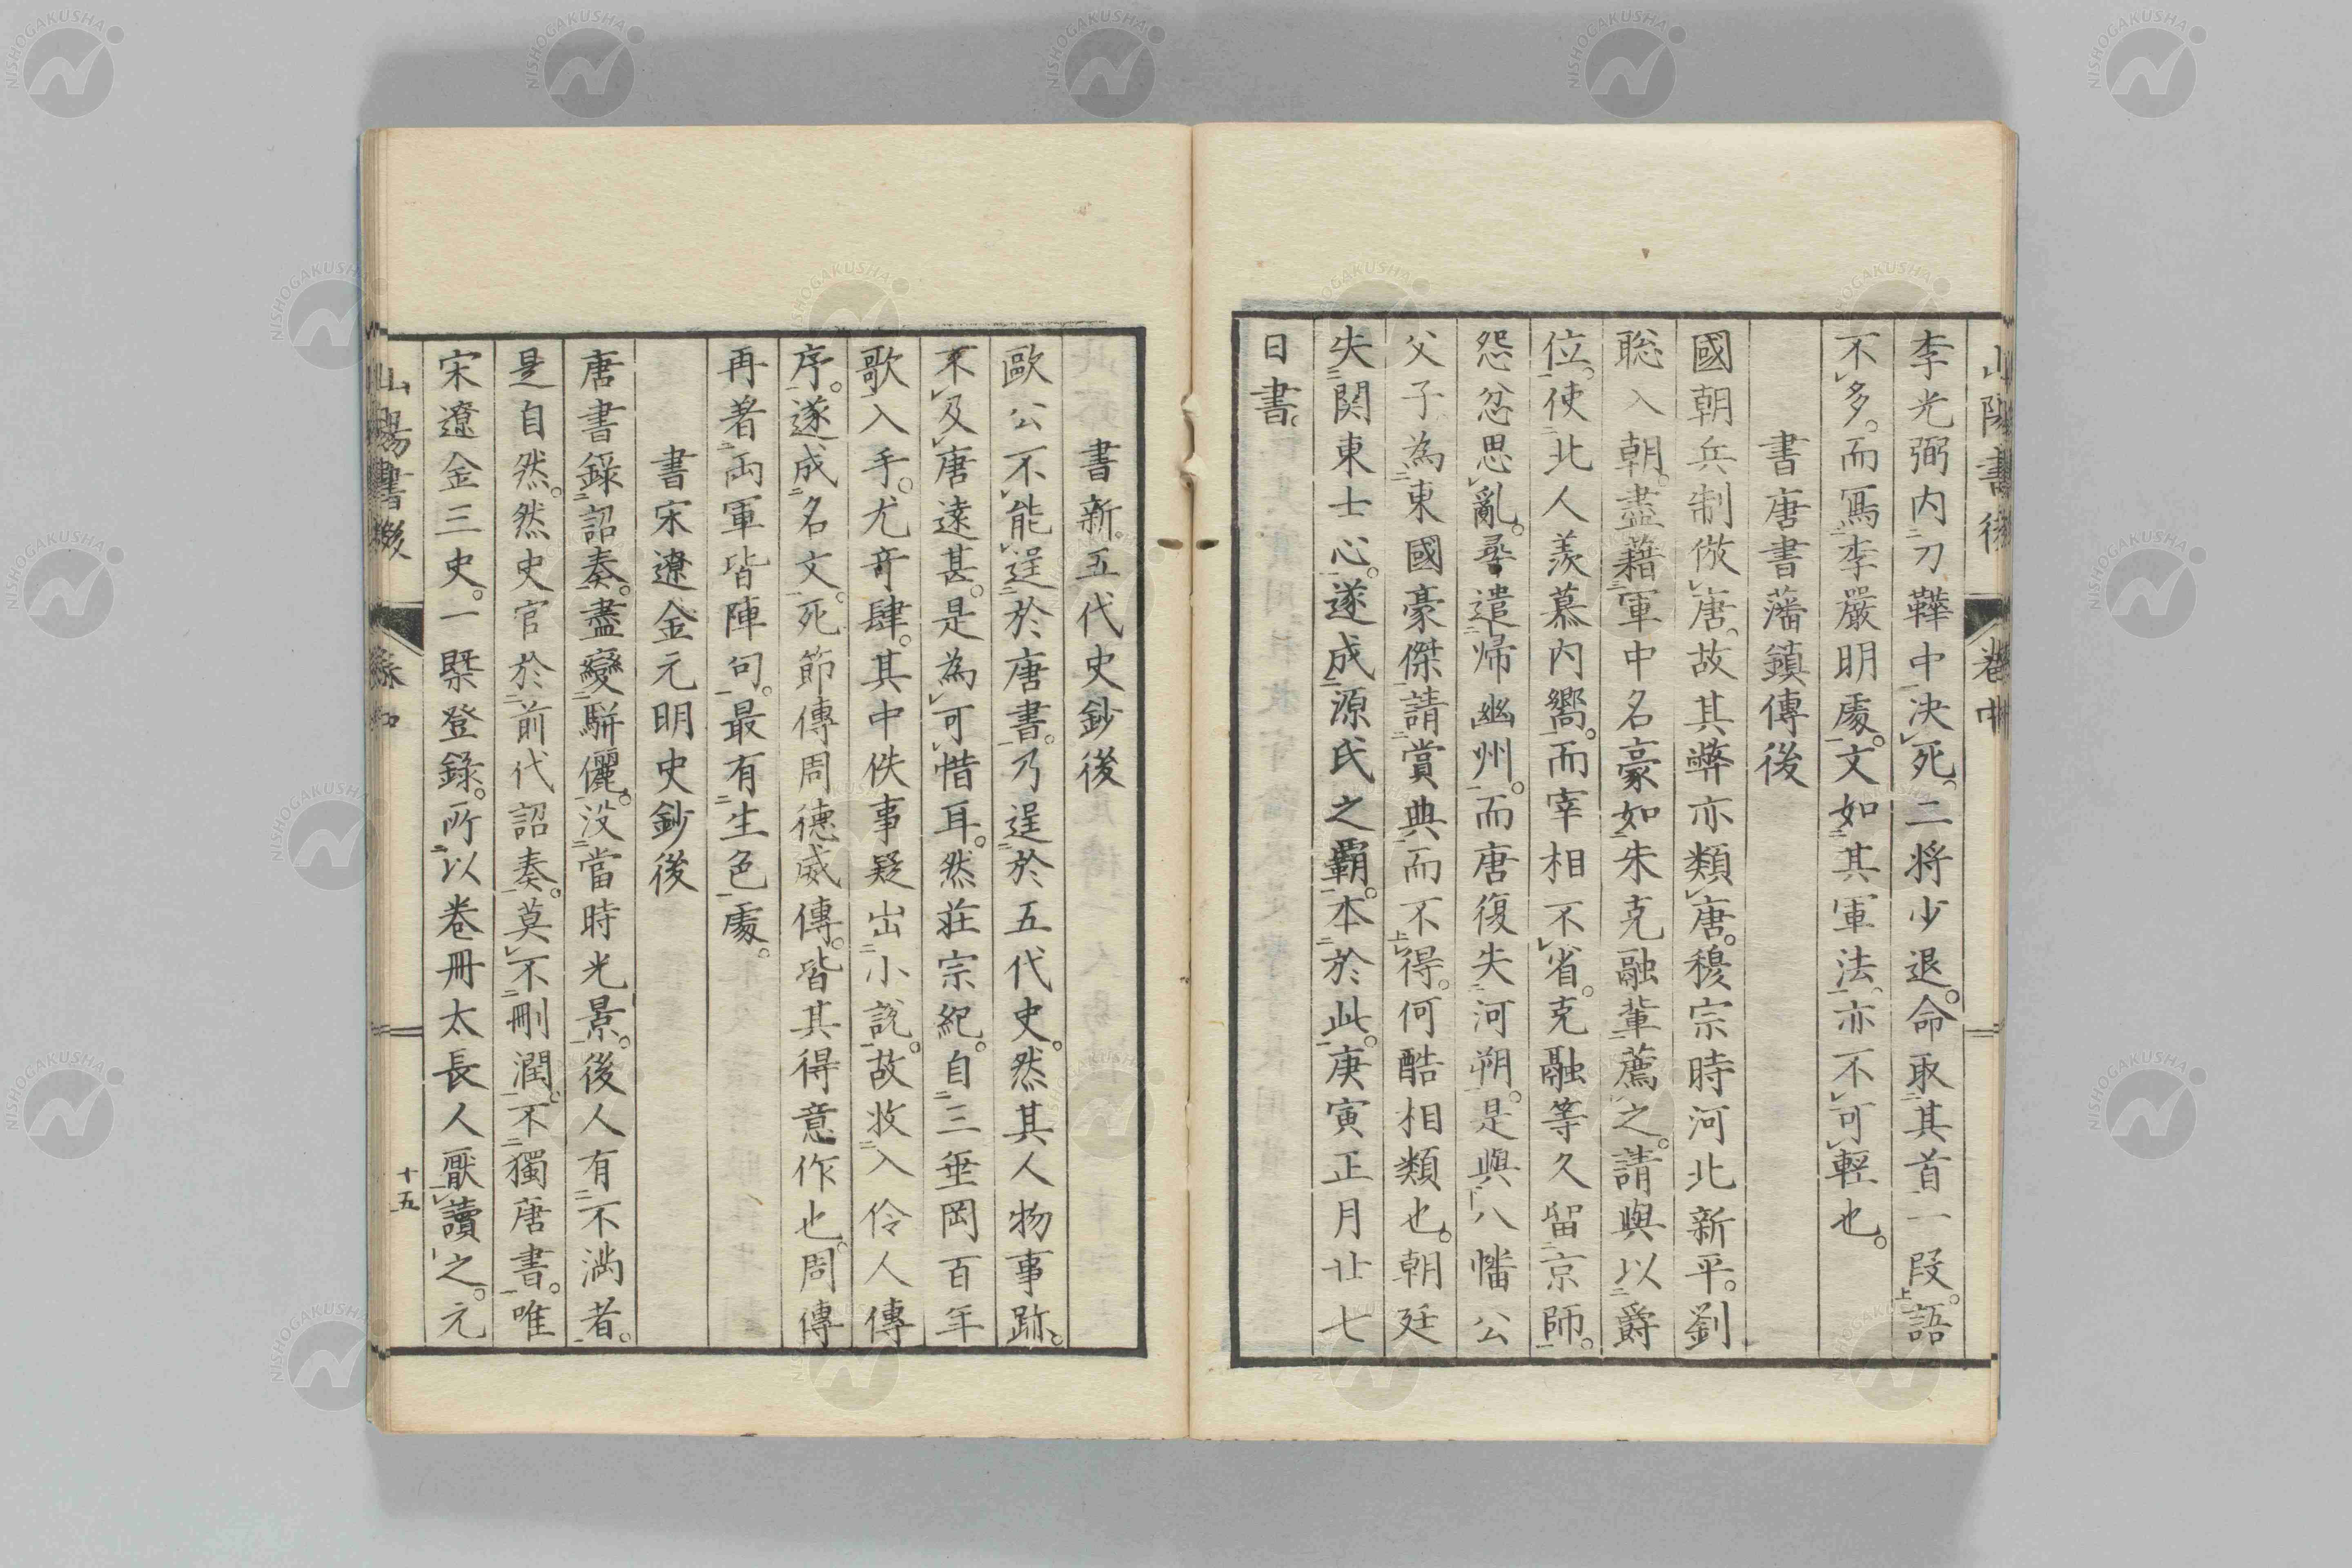 李光弼内刀鞾中決死。二将少退。命取其首一段。語
不多。而寫李嚴明處。文如其軍法。亦不可輕也。
書唐書藩鎮傳後
國朝兵制倣唐。故其弊亦類唐。穆宗時河北新平。劉
聡入朝。盡藉軍中名豪如朱克融輩薦之。請與以爵
位。使北人羨慕内嚮。而宰相不省。克融等久留京師。
怨忿思亂。尋遣帰幽州。而唐復失河朔。是與八幡公
父子為東國豪傑請賞典而不得。何酷相類也。朝廷
失関東士心。遂成源氏之覇。本於此。庚寅正月廿七
日書。
書新五代史鈔後
歐公不能逞於唐書。乃逞於五代史。然其人物事跡。
不及唐遠甚。是為可惜耳。然荘宗紀。自三垂岡百年
歌入手。尤奇肆。其中佚事疑出小説。故收入伶人傳
序。遂成名文。死節傳周德威傳。皆其得意作也。周傳
再著両軍皆陣句。最有生色處。
書宋遼金元明史鈔後
唐書錄詔奏。盡變駢儷。没當時光景。後人有不満者。
是自然。然史官於前代詔奏。莫不刪潤。不獨唐書。唯
宋遼金三史。一槩登錄。所以卷冊太長人厭讀之。元
十五
NISHOGAKUSHA